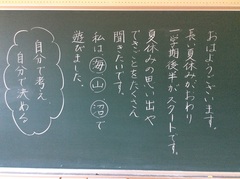 おはようございます。
長い夏休みがおわり
一学期後半がスタートです。
夏休みの思い出や
できごとをたくさん
聞きたいです。
私は海山沼で
遊びました。
自分で考え
自分で決める